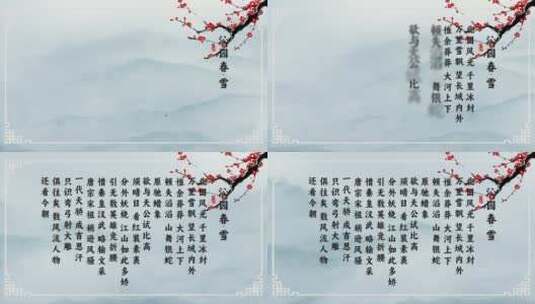 沁园春 雪
沁园春 雪
北国风光 千里冰封
万里雪飘 望长城内外
惟余莽莽 大河上下
顿失滔 舞银
欲与天公 比高
沁园春 雪
北国风光 千里冰封
万里雪飘 望长城内外
惟余莽莽 大河上下
顿失滔滔 山舞银蛇
原驰蜡象
欲与天公试比高
须晴日 看红装素裹
分外妖娆 江山如此多娇
引无数英雄竞折腰
惜秦皇汉武 略输文采
唐宗宋祖 稍逊风骚
一代天骄 成吉思汗
只识弯弓射大雕
俱往矣 数风流人物
还看今朝
沁园春 雪
北国风光 千里冰封
万里雪飘 望长城内外
惟余莽莽 大河上下
顿失滔滔 山舞银蛇
原驰蜡象
欲与天公试比高
须晴日 看红装素裹
分外妖娆 江山如此多娇
引无数英雄竞折腰
惜秦皇汉武 略输文采
唐宗宋祖 稍逊风骚
一代天骄 成吉思汗
只识弯弓射大雕
俱往矣 数风流人物
还看今朝